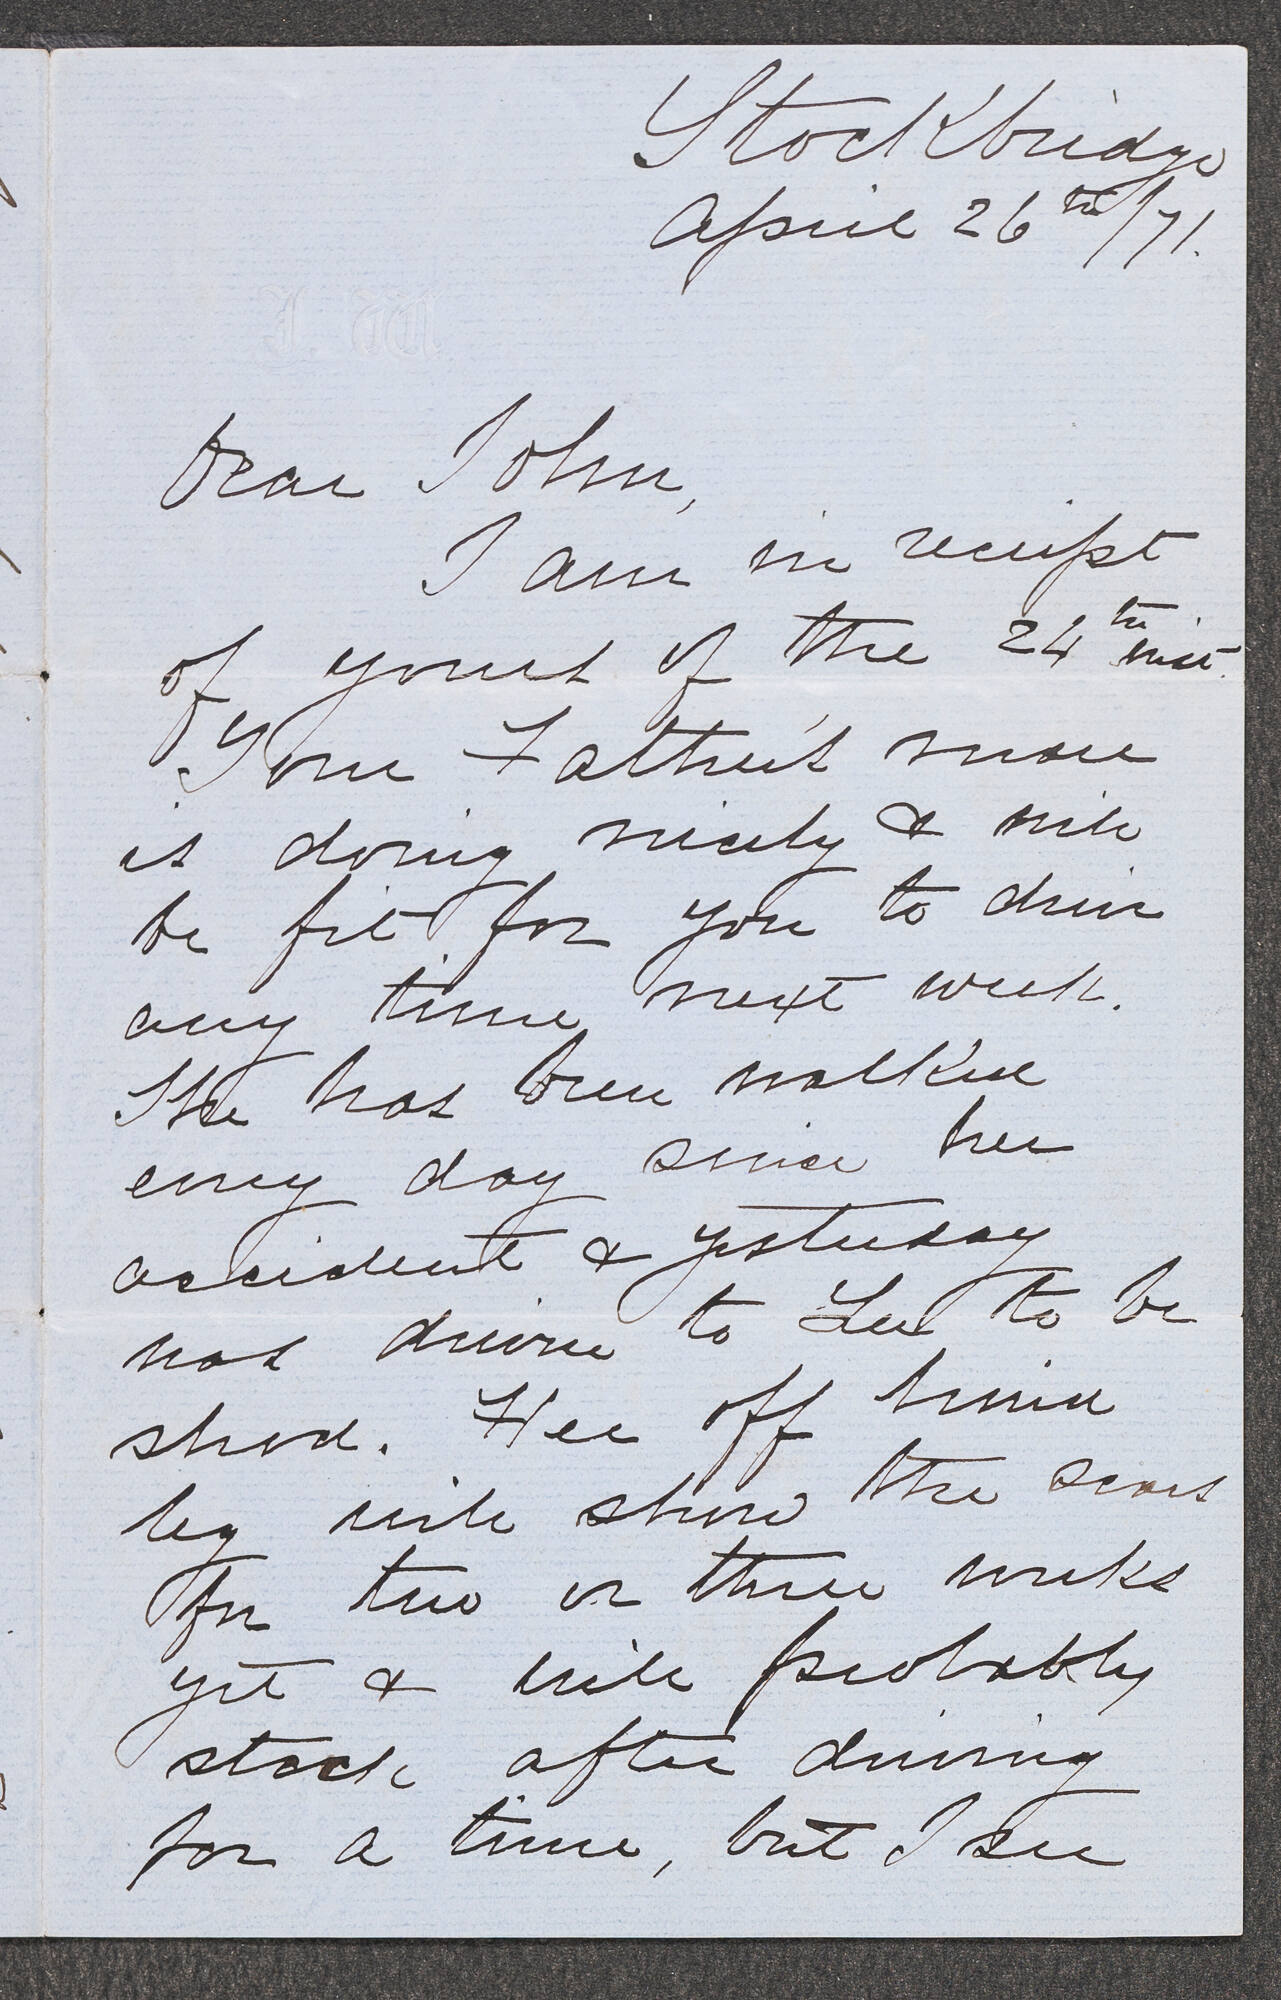 Stockbridge
April 26th/71.
Dear John,
I am in receipt
of yours of the 24th inst.
Your Father's mare
is doing nicely & will
be fit for you to drive
any time next week.
She has been walked
every day since her
accident & yesterday
was driven to Lee to be
shod. Her off hind
leg will show the scars
for two or three weeks
yet & will probably
stock after driving
for a time, but I see